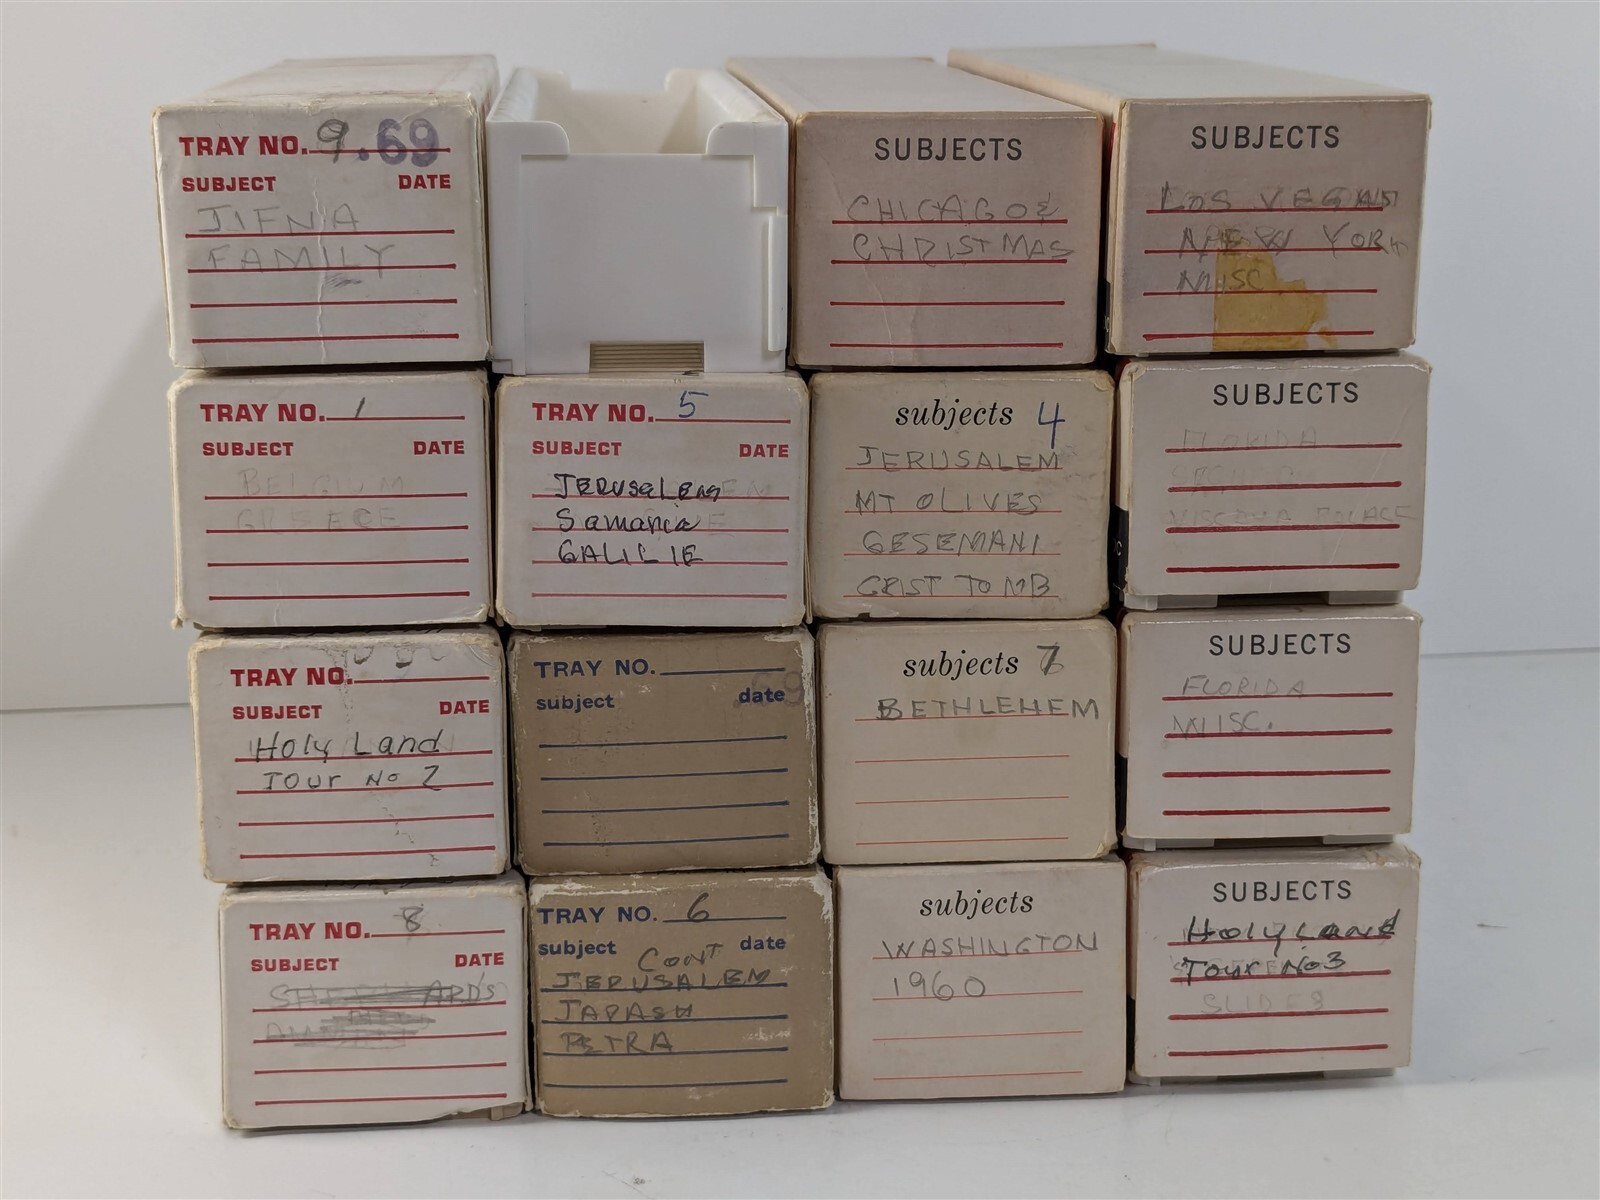 TRAY NO. 9 .69
SUBJECT DATE
JIFNA
FAMILY
SUBJECTS
CHICAGO &
CHRISTMAS
SUBJECTS
LOS VEGAS
NEW YORK
MISC
TRAY NO. 1
SUBJECT DATE
BELGIUM
GREECE
TRAY NO. 5
SUBJECT DATE
JERUSALEM
Samaria
GALILIE
subjects 4
JERUSALEM
MT OLIVES
GESEMANI
CRIST TOMB
SUBJECTS
FLORIDA
VISCAYA PALACE
TRAY NO.
SUBJECT DATE
Holy Land
Tour No 2
TRAY NO.
subject date
.69
subjects 7
BETHLEHEM
SUBJECTS
FLORIDA
MISC.
TRAY NO. 8
SUBJECT DATE
TRAY NO. 6
subject date
CONT
JERUSALEM
JARASH
PETRA
subjects
WASHINGTON
1960
SUBJECTS
Holy Land
Tour No 3
SLIDES